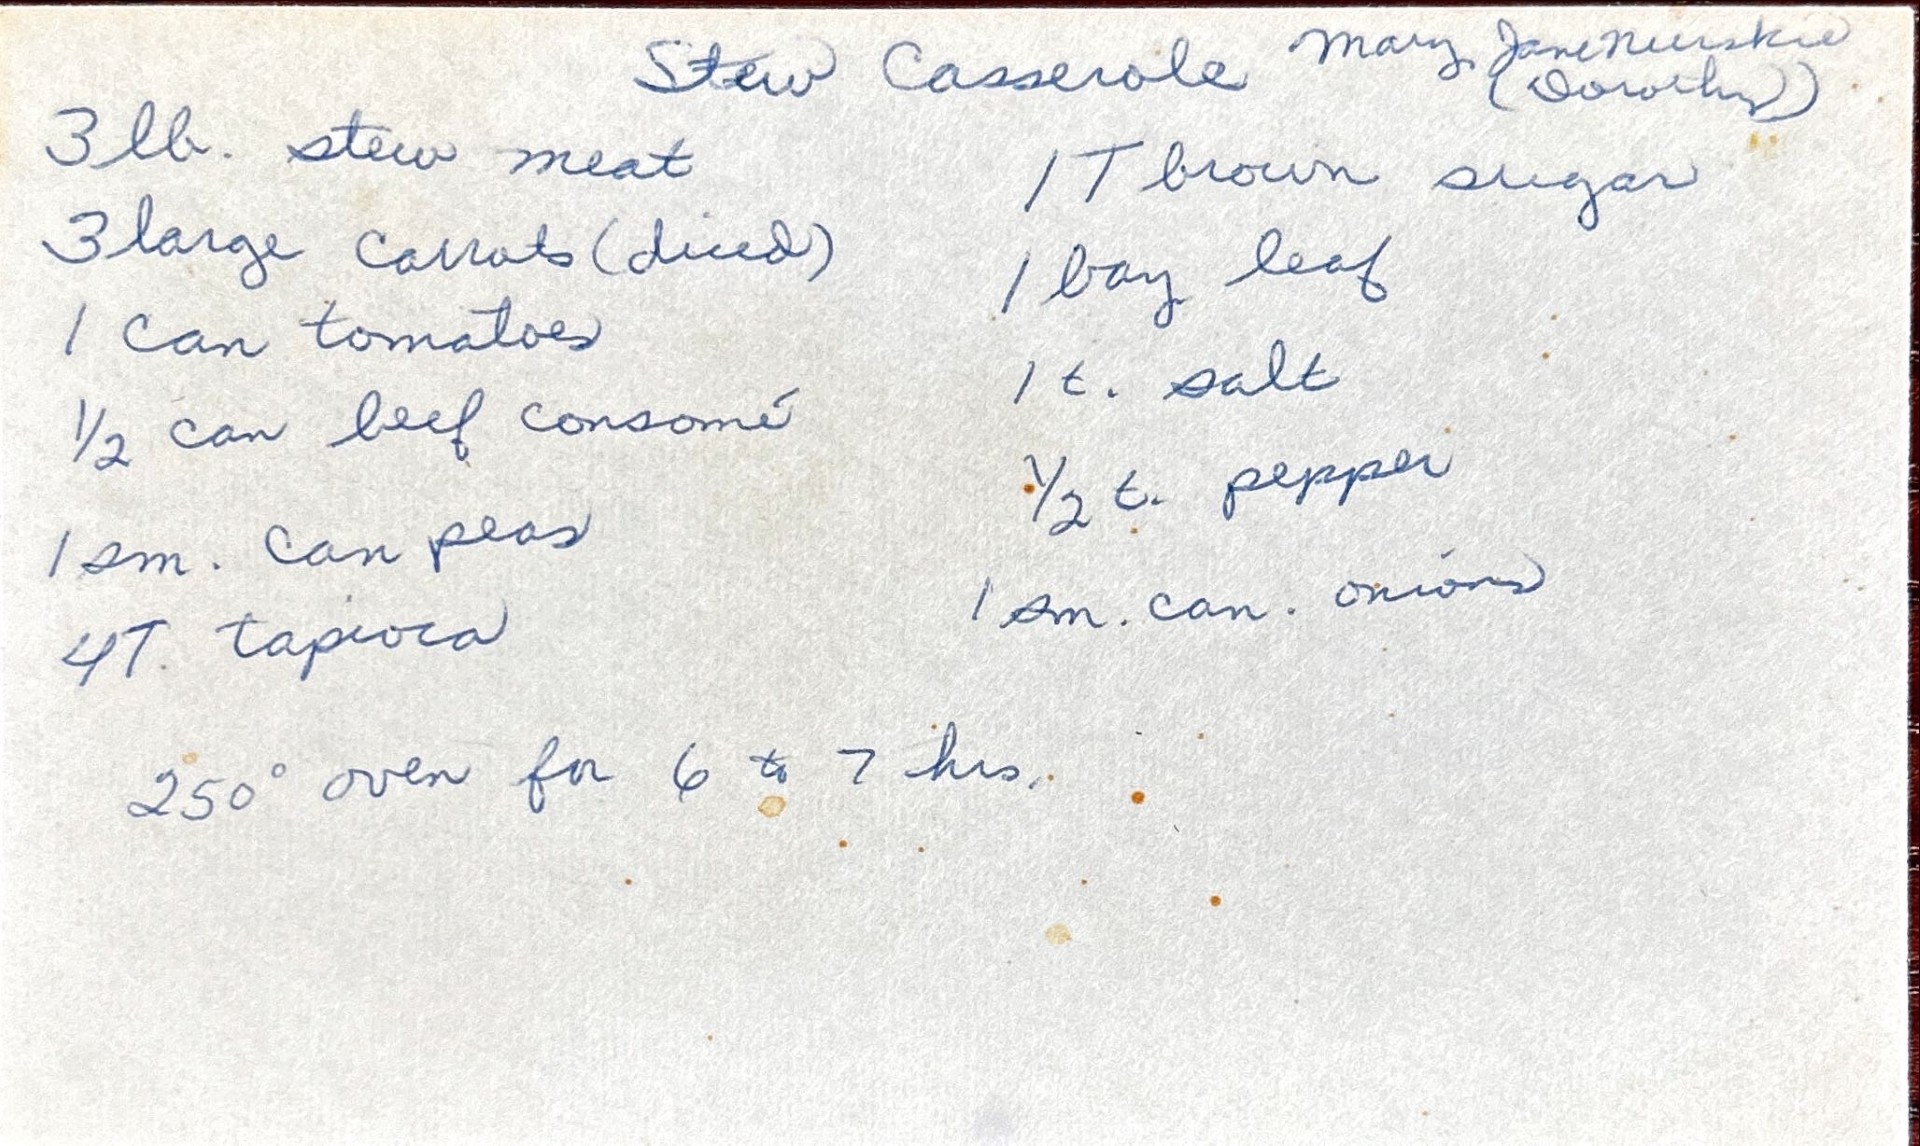 Stew Casserole Mary Jane
(Dorothy)
3 lb. stew meat
3 large carrots (diced)
1 can tomatoes
1/2 can beef consomé
1 sm. can peas
4T. tapioca
1 T brown sugar
1 bay leaf
1 t. salt
1/2 t. pepper
1 sm. can. onions
250° oven for 6 to 7 hrs.